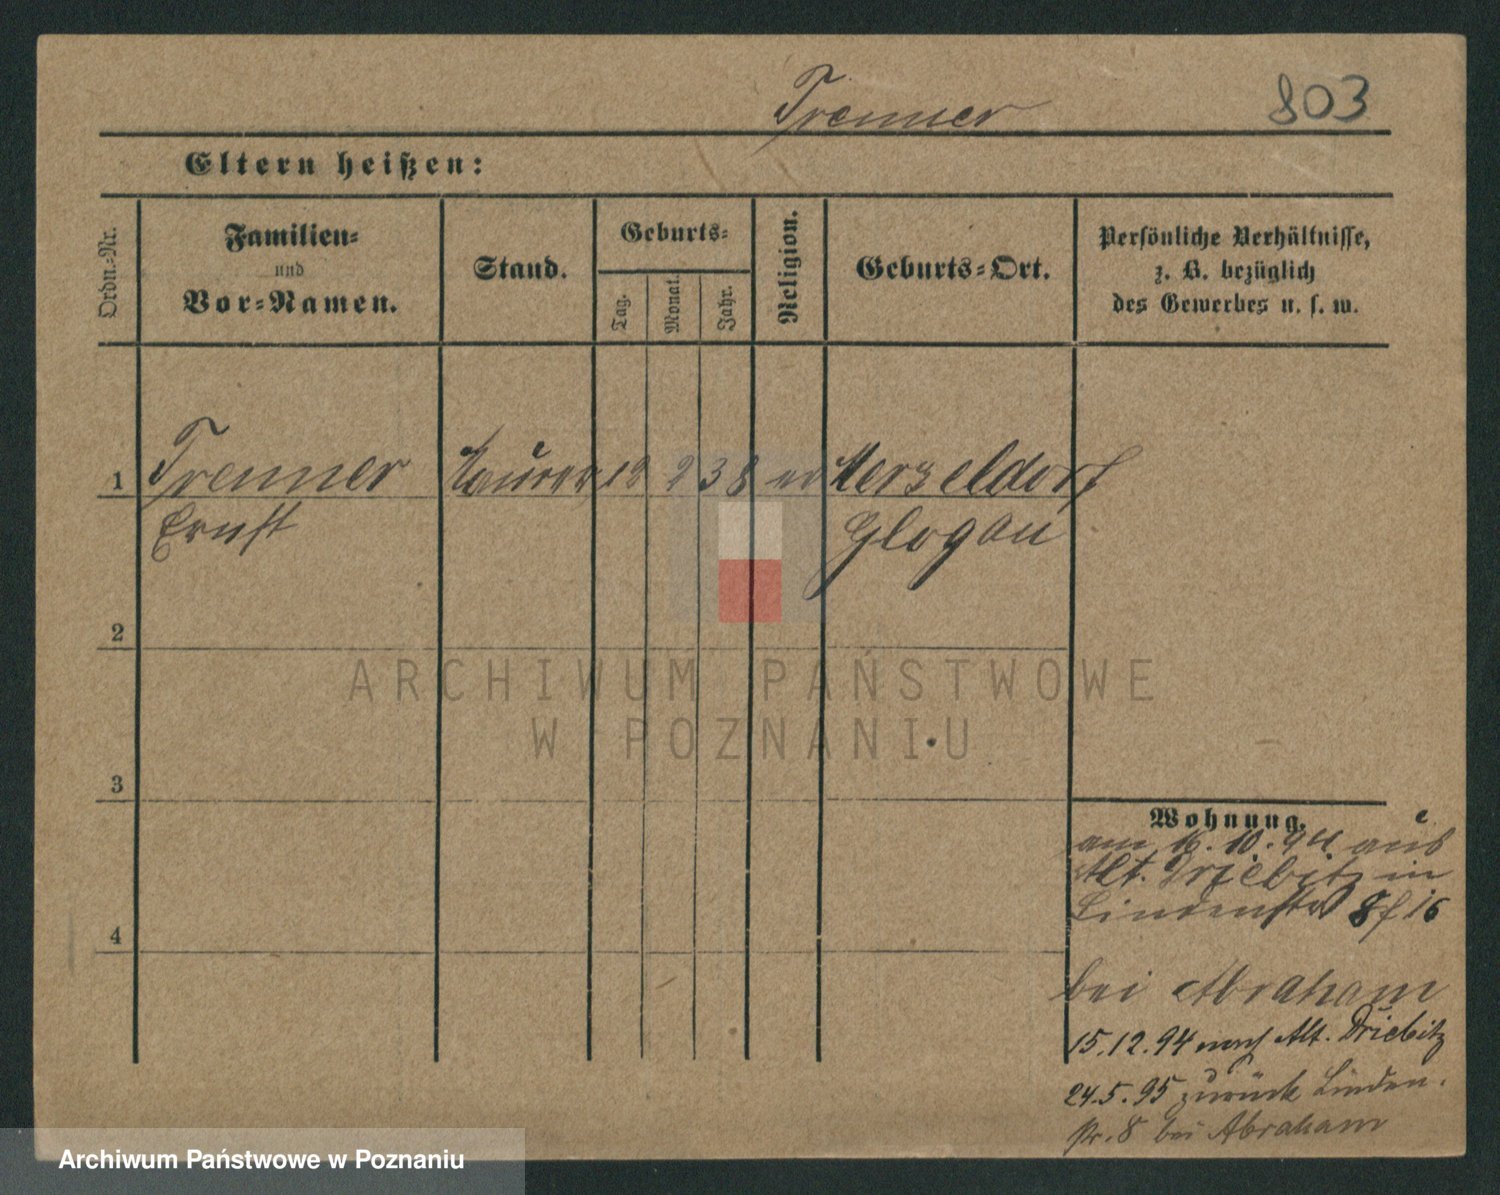 Trenner 803
Eltern heißen:
Ordn.-Nr.
Familien-
und
Vor-Namen.
Stand.
Geburts-
Tag.
Monat.
Jahr.
Religion.
Geburts-Ort.
Persönliche Verhältnisse,
z. B. bezüglich
des Gewerbes u. s. w.
1 Trenner Maurer 12 2 38 ev Herzeldorf
Ernst Glogau
2
3
4
Wohnung.
am 16. 10. 94 aus
Alt. Driebitz in
Lindenstr 8 f 16
bei Abraham
15.12.94 nach Alt. Driebitz
24.5.95 zurück Linden.
str. 8 bei Abraham
ARCHIWUM PAŃSTWOWE
W POZNANIU
Archiwum Państwowe w Poznaniu